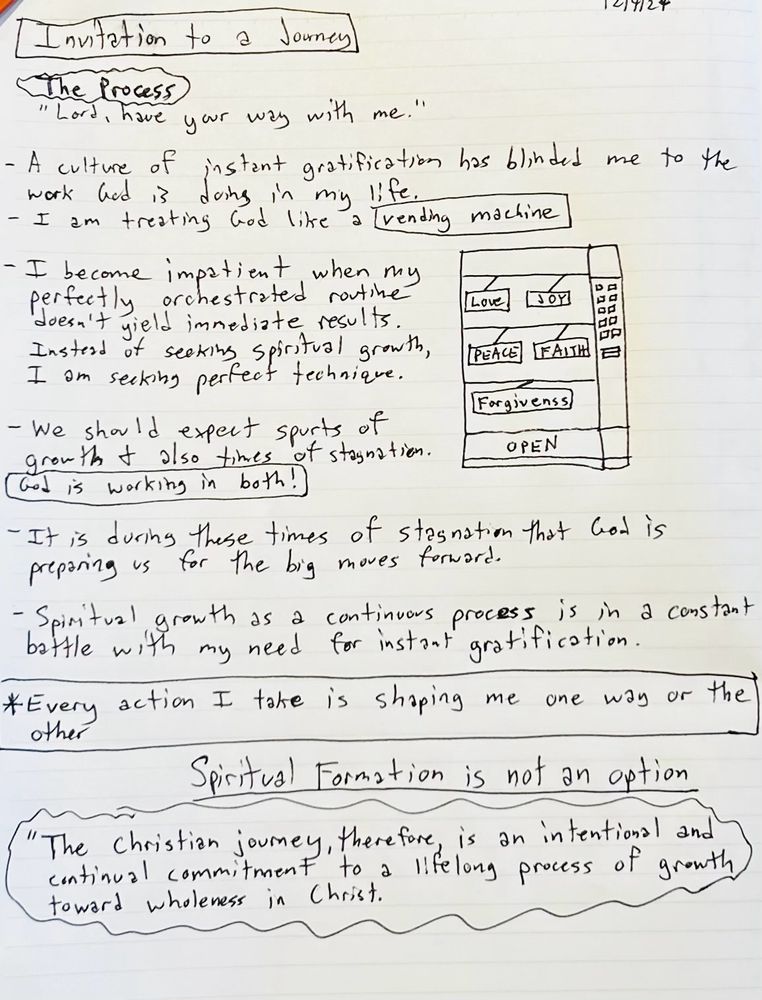 12/9/24
Invitation to a Journey
The Process
"Lord, have your way with me."
- A culture of instant gratification has blinded me to the
work God is doing in my life.
- I am treating God like a vending machine
- I become impatient when my
perfectly orchestrated routine
doesn't yield immediate results.
Instead of seeking spiritual growth,
I am seeking perfect technique.
Love JOY
PEACE FAITH
Forgivenss
OPEN
- We should expect spurts of
growth & also times of stagnation.
God is working in both!
- It is during these times of stagnation that God is
preparing us for the big moves forward.
- Spiritual growth as a continuous process is in a constant
battle with my need for instant gratification.
*Every action I take is shaping me one way or the
other
Spiritual Formation is not an option
"The Christian journey, therefore, is an intentional and
continual commitment to a lifelong process of growth
toward wholeness in Christ.